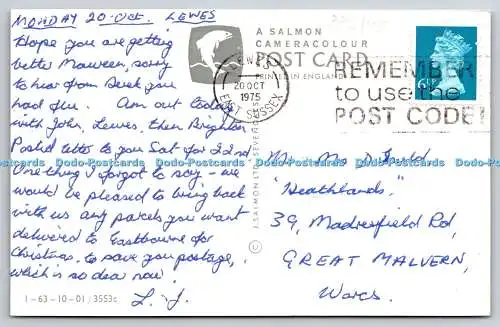 MONDAY 20-Oct. LEWES
Hope you are getting
better Maureen, sorry
to hear from Derek you
had flu. Am out today
with John, Lewes, then Brighton
Posted letter to you Sat for 22nd
One thing I forgot to say - we
would be pleased to bring back
with us any parcels you want
delivered to Eastbourne for
Christmas, to save you postage,
which is so dear now.
L. J.
1-63-10-01 / 3553c
A SALMON
CAMERACOLOUR
POST CARD
PRINTED IN ENGLAND
J. SALMON LTD SEVENOAKS
©
LEWES
20 OCT
1975
EAST SUSSEX
REMEMBER
to use the
POST CODE!
6½P
Mr. Mrs D.
"Heathlands"
39, Madresfield Rd,
GREAT MALVERN,
Worcs.
Dodo-Postcards Dodo-Postcards Dodo-Postcards Dodo-Postcards Dodo-Postcards Dodo-Postcards